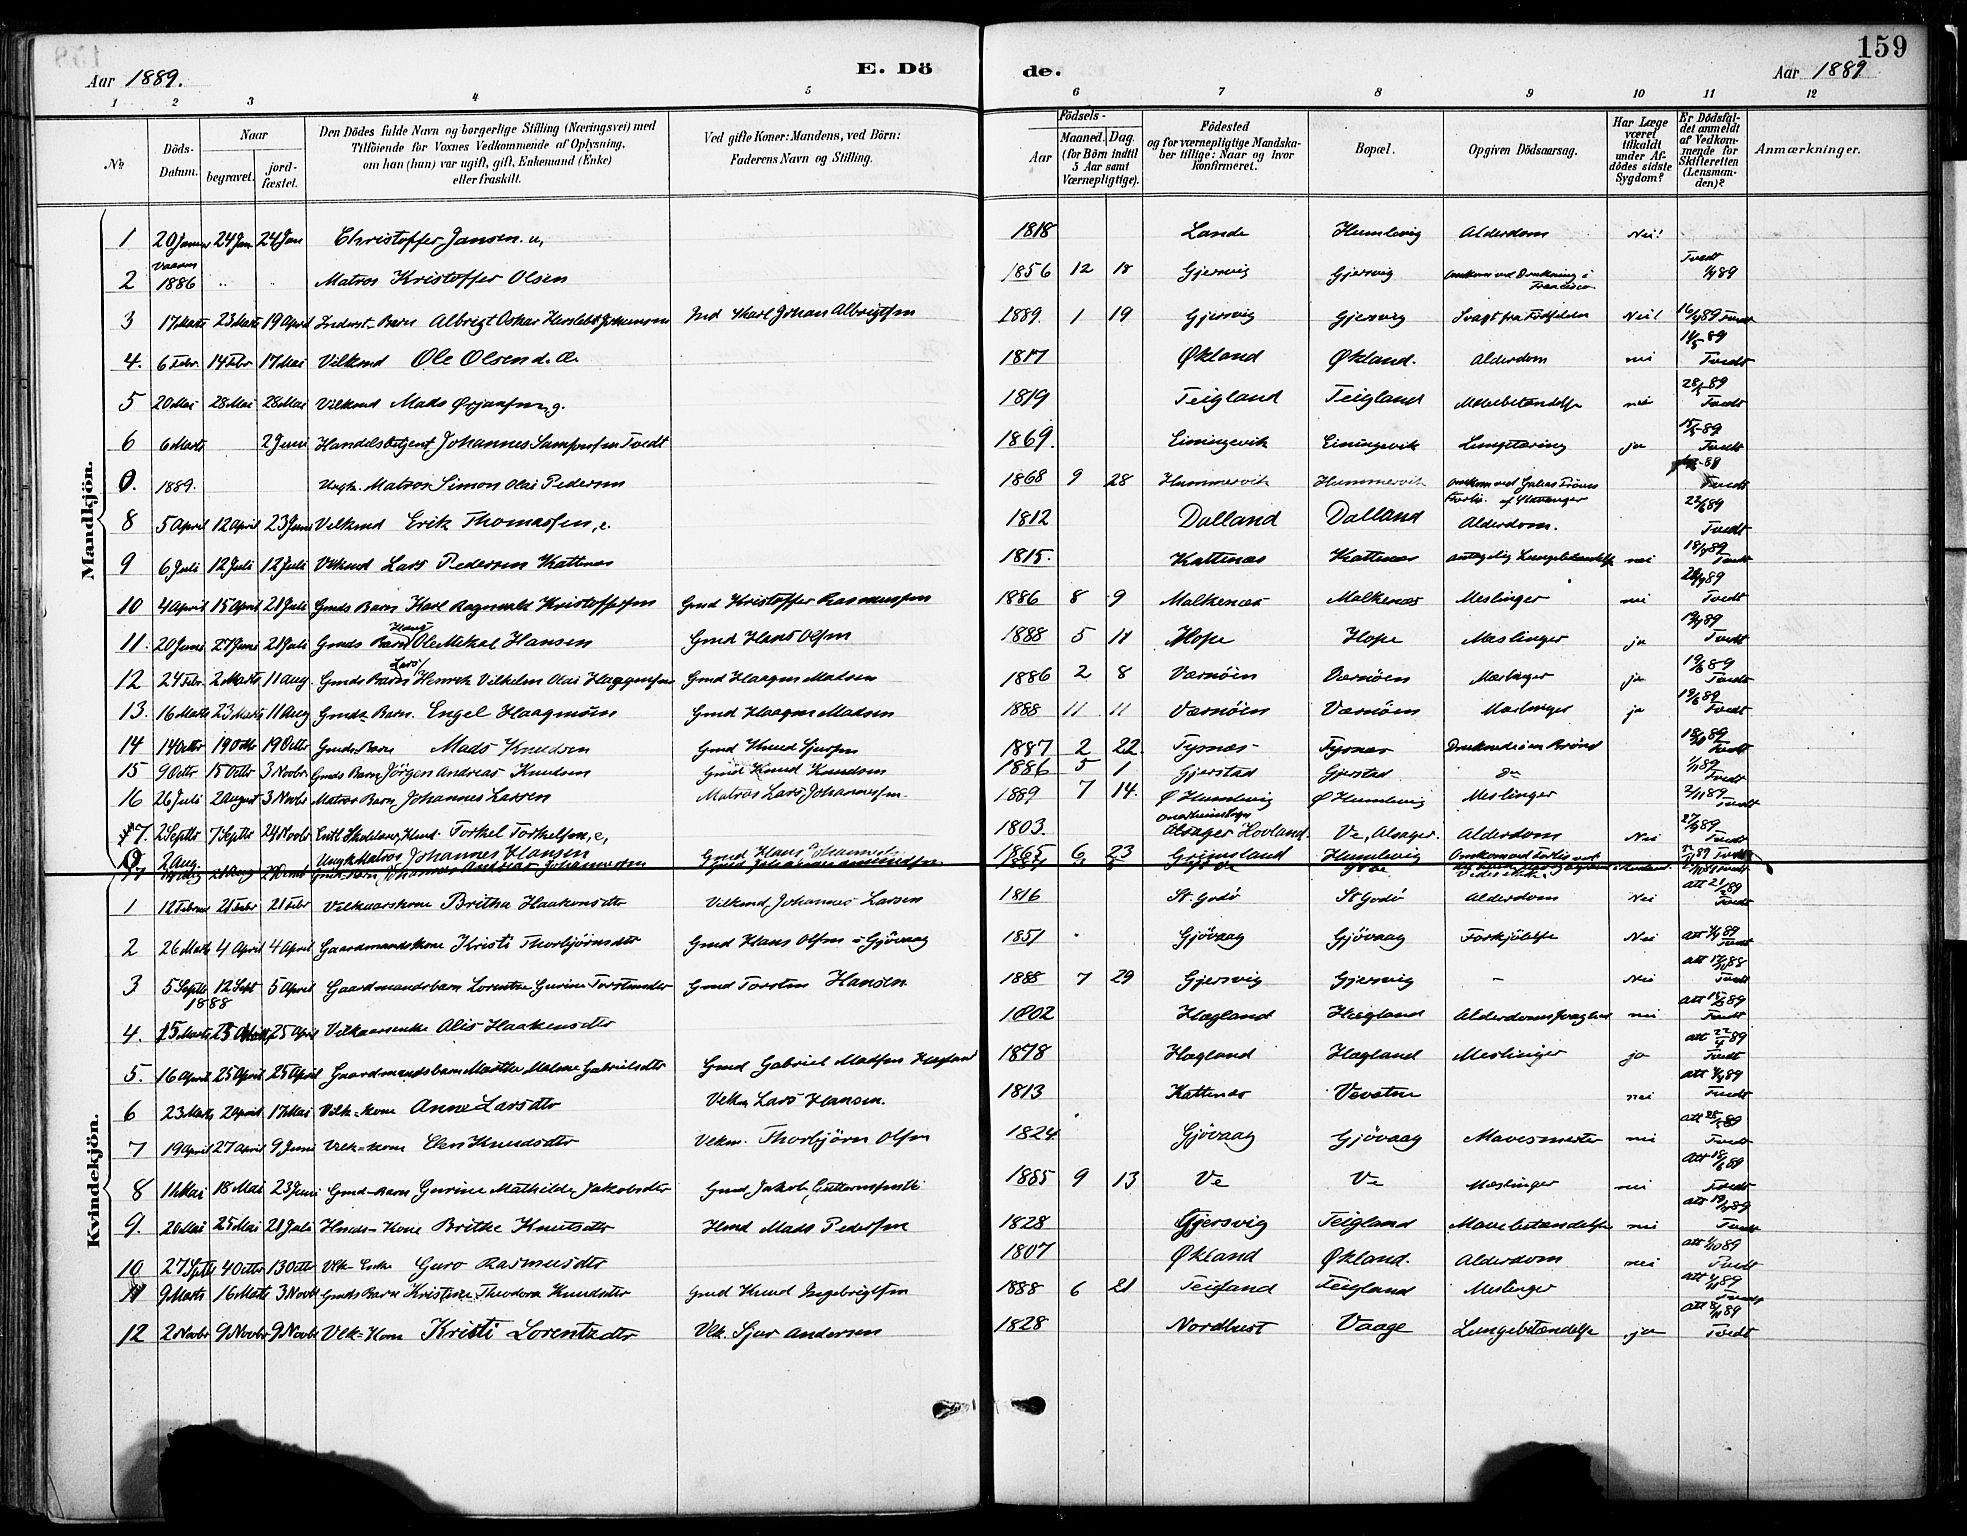 159
Aar 1889.
E. Dö
de.
Aar 1889
1 2 3 4 5 6 7 8 9 10 11 12
No
Döds-Datum.
Naar
begravet.
jordfæstet.
Den Dödes fulde Navn og borgerlige Stilling (Næringsvei) med Tilföiende for Voxnes Vedkommende af Oplysning, om han (hun) var ugift, gift, Enkemand (Enke) eller fraskilt.
Ved gifte Koner: Mandens, ved Börn: Faderens Navn og Stilling.
Födsels-
Aar
Maaned. Dag. (for Börn indtil 5 Aar samt Værnepligtige).
Födested og for værnepligtige Mandskaber tillige: Naar og hvor konfirmeret.
Bopæl.
Opgiven Dödsaarsag.
Har Læge været tilkaldt under Afdödes sidste Sygdom?
Er Dödsfaldet anmeldt af Vedkommende for Skifteretten (Lensmanden)?
Anmærkninger.
Mandkjön.
1 20 Januar 24 Jan 24 Jan Christoffer Jansen. u, 1818 Lande Humlevig Alderdom Nei!
2 1886 Matros Kristoffer Olsen 1856 12 18 Gjersvig Gjersvig Tvedt
3 17 Marts 23 Marts 19 April Barn Albrigt Oskar Johannsen Ind Karl Johan Albrigtsen 1889. 1 19 Gjersvig Gjersvig Svagt fra Födselen Nei! 16/4 89 Tvedt
4. 6 Febr. 14 Febr 17 Mai Vilkmd Ole Olsen 1817 Økland Økland. Alderdom nei 14/5 89 Tvedt
5 20 Mai 28 Mai 28 Mai Vilkmd Mads Ørjansen, g. 1819 Teigland Teigland Mavebetændelse nei 28/5 89 Tvedt
6 6 Marts 2 Juni Handelsbetjent Johannes Samsonsen Tvedt 1869. Einingevik Einingevik Lungetæring ja 89 Tvedt
1889. Ungk. Matros Simon Olai Pedersen 1868 9 28 Hummervik Hummervik Tvedt
8 5 April 12 April 23 Juni Velkmd Erik Thomassen, e. 1812 Dalland Dalland Alderdom. 89 Tvedt
9 6 Juli 12 Juli 12 Juli Vilkmd Lars Pedersen Kattnes 1815. Kattnæs Kattnæs antagelig Lungebetændelse nei 89 Tvedt
10 4 April 15 April 21 Juli Gmds Barn Karl Ragnvald Kristoffersen Gmd Kristoffer Rasmussen 1886 8 9 Malkenæs Malkenæs Meslinger nei 89 Tvedt
11. 20 Juni 27 Juni 21 Juli Gmds Barn Ole Mikal Hansen Gmd Hans Olsen 1888 5 11 Hope Hope Meslinger ja 89 Tvedt
12 24 Febr. 2 Marts 11 Aug. Gmds Barn Lars Henrik Vilhelm Olai Haagensen Gmd Haagen Madsen 1886 2 8 Værnöien Værnöien Meslinger ja 89 Tvedt
13. 16 Marts 23 Marts 11 Aug Gmds Barn. Engel Haagensen Gmd Haagen Madsen 1888 11 11 Værnöien Værnöien Meslinger ja 89 Tvedt
14 14 Octbr 19 Octbr 19 Octbr Gmds Barn Mads Knudsen Gmd Knud Sjursen 1887 2 22. Tysnæs Tysnæs Druknede i en Brönd 89 Tvedt
15 9 Octbr 15 Octbr 3 Novbr Gmds Barn Jörgen Andreas Knudsen Gmd Knud Knudsen 1886 5 1 Gjerstad Gjerstad do 89 Tvedt
16 26 Juli 2 August 3 Novbr Matros Barn Johannes Larsen Matros Lars Johannessen 1889 7 14. Ø Humlevig Ø Humlevig Meslinger 2/11 89 Tvedt
17. 2 Septbr 7 Septbr 24 Novbr Torkel Torkelsen, e, 1803. Alsager Hovland. Ve, Alsager. Alderdom Nei 89 Tvedt
2 Aug. Ungk Matros Johannes Hansen Gmd Hans 1865 6 23 Grimsland Humlevig Omkom ved Forlis
Kvindekjön.
1 12 Februar 21 Febr 21 Febr Vilkaarskone Britha Haakonsdtr Velkmd Johannes Larsen 1816 St Godö St Godö Alderdom Nei att 21/2 89 Tvedt
2 26 Marts 4 April 4 April Gaardmandskone Kristi Thorbjörnsdtr Gmd Hans Olsen i Gjövaag 1851 Gjövaag Gjövaag Forkjölelse Nei att 89 Tvedt
3 5 Septbr 12 Sept 5 April 1888 Gaardmandsbarn Lorentze Gurine Torstensdtr Gmd Torsten Hansen 1888 7 29 Gjersvig Gjersvig - Nei att 88 Tvedt
4. 15 Marts 25 April Vilkaarsenke Alis Haakensdtr 1802 Hægland Hægland Alderdomssvaghed nei att 89 Tvedt
5. 16 April 25 April 25 April Gaardmandsbarn Marthe Malene Gabrielsdtr Gmd Gabriel Madsen Hægland 1878 Hægland Hægland Meslinger ja att 89 Tvedt
6 23 Marts 2 April 17 Mai Vilk-kone Anne Larsdtr Velkm Lars Hansen. 1813 Kattnes Vevatne nei att 89 Tvedt
7 19 April 27 April 9 Juni Velk-kone Knudsdtr Velkm. Thorbjörn Olsen 1824 Gjövaag Gjövaag Mavesmerter nei att 89 Tvedt
8 11 Mai 18 Mai 23 Juni Gmd-Barn Gurine Mathilde Jakobsdtr Gmd Jakob Guttormsen 1885 9 13 Ve Ve Meslinger nei att 89 Tvedt
9. 20 Mai 25 Mai 21 Juli Hmds-Kone Brithe Knutsdtr Hmd Mads Pedersen 1828 Gjersvig Teigland Mavebetændelse nei att 89 Tvedt
10 27 Sptbr 4 Octbr 13 Octbr Vlk Enke Guro Rasmusdtr 1807 Økland Økland. Alderdom nei att 89 Tvedt
11 9 Marts 16 Marts 3 Novbr Gmds Barn Kristine Theodora Knudsdtr Gmd Knud Ingebrigtsen 1888 6 21 Teigland Teigland Meslinger att 89 Tvedt
12 2 Novbr 9 Novbr 9 Novbr Vlk-Kone Kristi Lorentzdtr Vlk Sjur Andersen 1828 Nordhust Vaage Lungebetændelse ja att 89 Tvedt